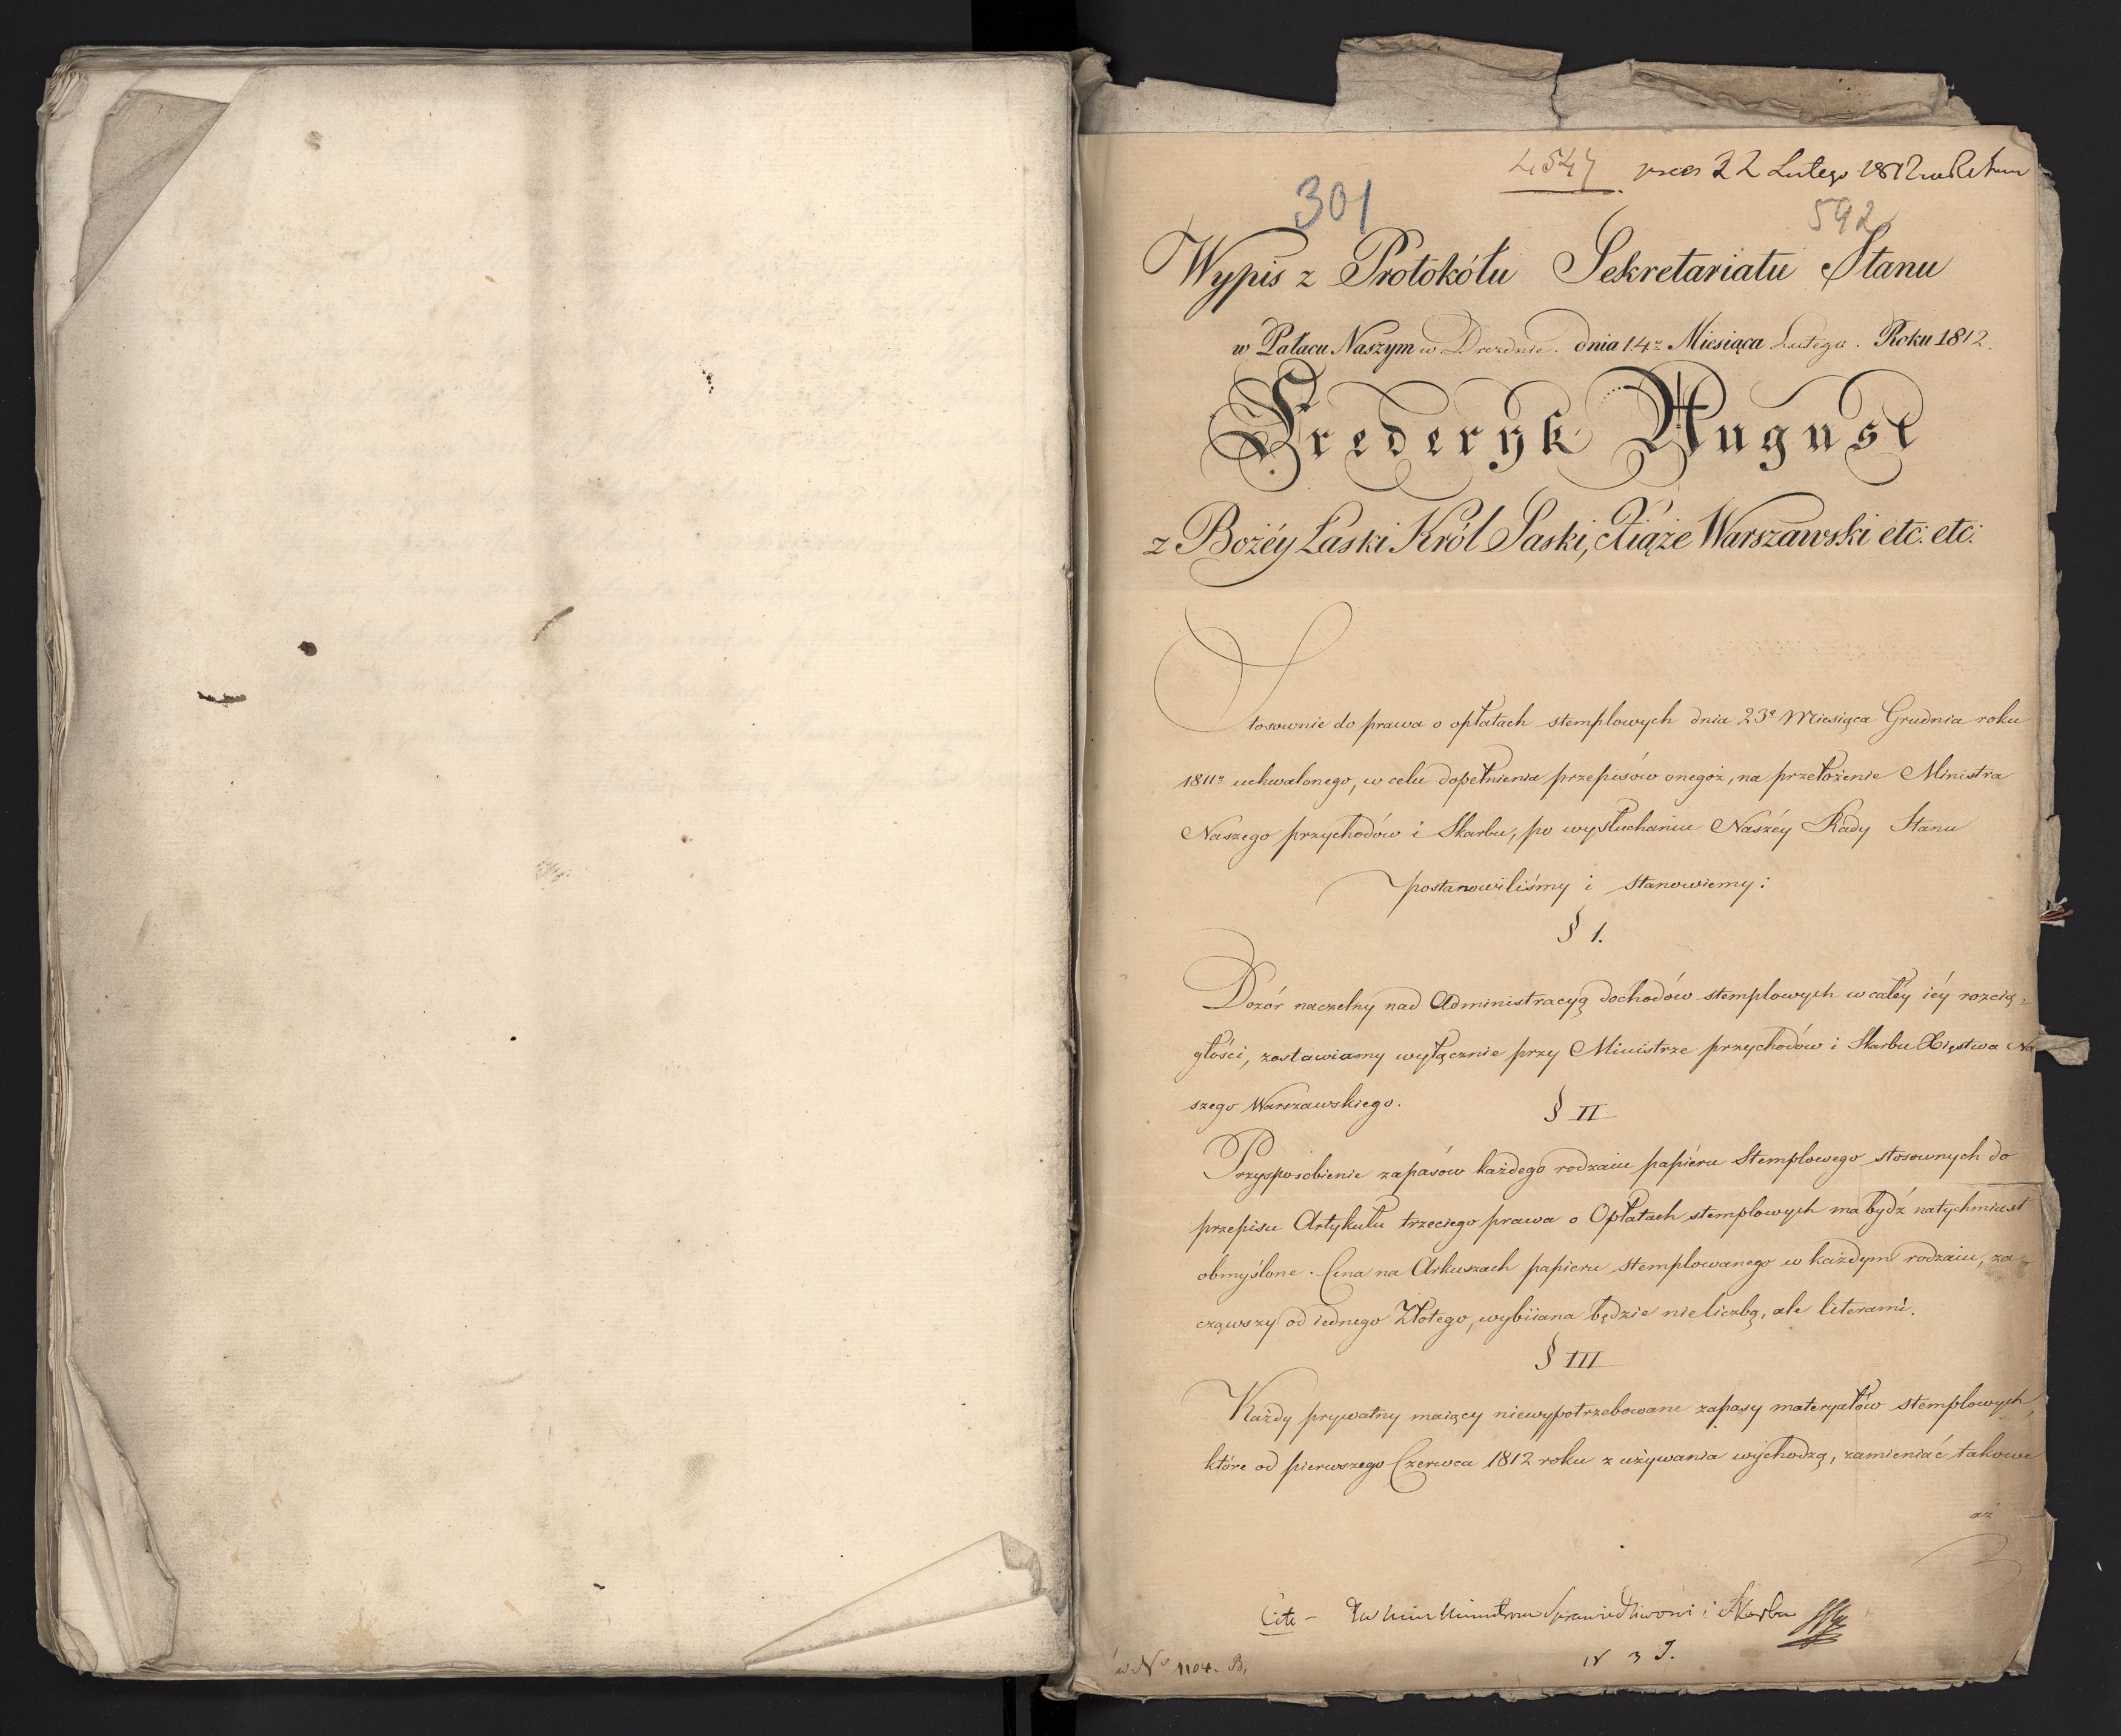 4547 22 Lutego 1812
301
592
Wypis z Protokółu Sekretariatu Stanu
w Pałacu Naszym w Dreźnie. dnia 14º Miesiąca Lutego. Roku 1812.
Frederyk August
z Bożéy Łaski Król Saski, Xiąże Warszawski etc: etc:
Stosownie do prawa o opłatach stemplowych dnia 23º Miesiąca Grudnia roku
1811º uchwalonego, w celu dopełnienia przepisów onegoż, na przełożenie Ministra
Naszego przychodów i Skarbu, po wysłuchaniu Naszéy Rady Stanu
postanowiliśmy i stanowiemy:
§ 1.
Dozór naczelny nad Administracyą dochodów stemplowych w całéy iéy rozcią-
głości, zostawiamy wyłącznie przy Ministrze przychodów i Skarbu Xięstwa Na
szego Warszawskiego.
§ II
Przysposobienie zapasów każdego rodzaiu papiéru Stemplowego stosownych do
przepisu Artykułu trzeciego prawa o Opłatach stemplowych ma bydź natychmiast
obmyślone. Cena na Arkuszach papieru stemplowanego w każdym rodzaiu, za-
cząwszy od iednego Złotego, wybiiana będzie nie liczbą, ale literami.
§ III
Każdy prywatny maiący niewypotrzebowane zapasy materyałów stemplowych,
które od pierwszego Czerwca 1812 roku z używania wychodzą, zamieniać takowe
aż
Sprawiedliwości i Skarbu
w Nº 1104. B,